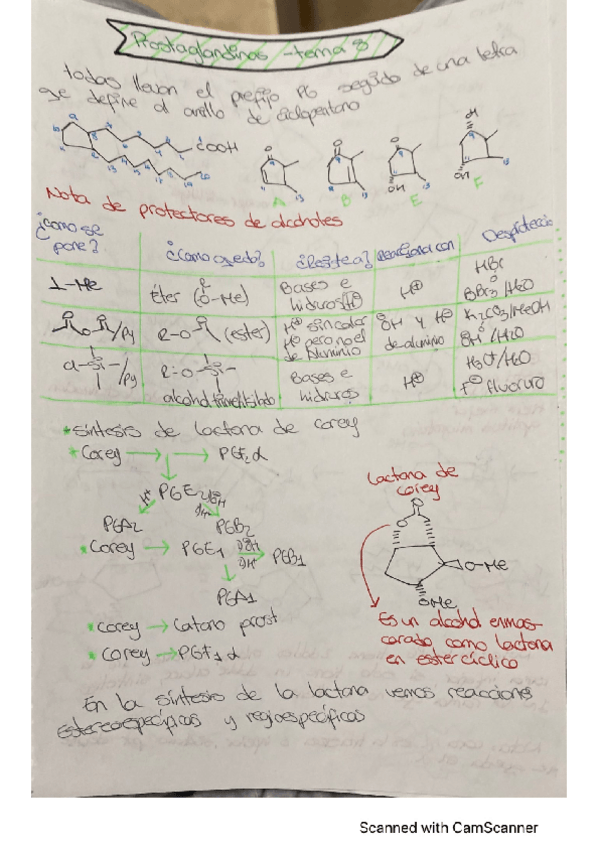 Prostaglandinas - tema 8
todas llevan el prefijo PG seguido de una letra
que define al anillo de ciclopentano
COOH
A B E F
Nota de protectores de alcoholes
¿como se pone? ¿como quedo? ¿Resiste a? Reacciona con Desprotección
I-Me éter (O-Me) Bases e hidruros (H⊖) H⊕ HBr BBr3/H2O
/Py R-O (ester) H⊕ sin calor H⊖ pero no el de Aluminio ⊖OH y H⊖ de aluminio K2CO3/MeOH ⊖OH/H2O
Cl-Si-/Py R-O-Si- alcohol trimetilsilado Bases e hidruros H⊕ H3O+/H2O F⊖ fluoruro
*síntesis de lactona de corey
* Corey → → PGF2α
H+ PGE2 ⊖OH
PGA2 PGB2
* Corey → PGE1 → PGB1
PGA1
* Corey → Catano prost
* Corey → PGF1α
Lactona de
corey
O-Me
OMe
Es un alcohol enmas-
carado como lactona
en ester cíclico
En la síntesis de la lactona vemos reacciones
estereoespecíficas y regioespecíficas
Scanned with CamScanner